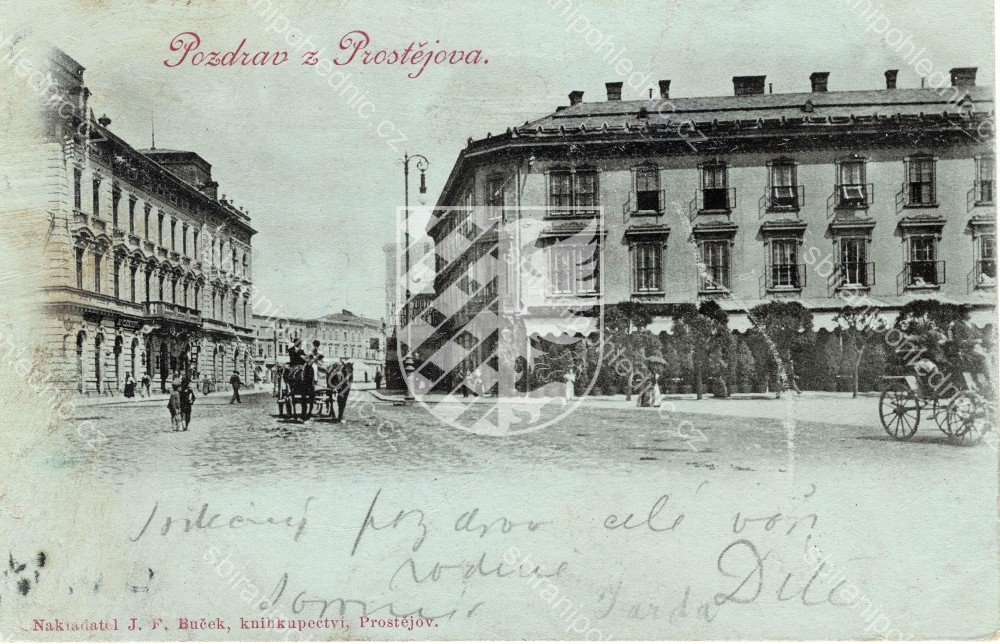 Pozdrav z Prostějova.
Srdečný pozdrav celé vaší
rodině
Jarda
Nakladatel J. F. Buček, knihkupectví, Prostějov.
sbiranipohlednic.cz